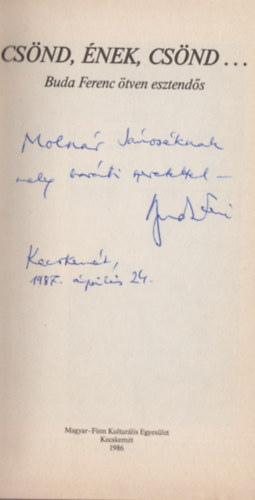 CSÖND, ÉNEK, CSÖND . . .
Buda Ferenc ötven esztendős
Molnár Jánoséknak
meleg baráti szeretettel —
Buda Feri
Kecskemét,
1987. április 24.
Magyar–Finn Kulturális Egyesület
Kecskemét
1986